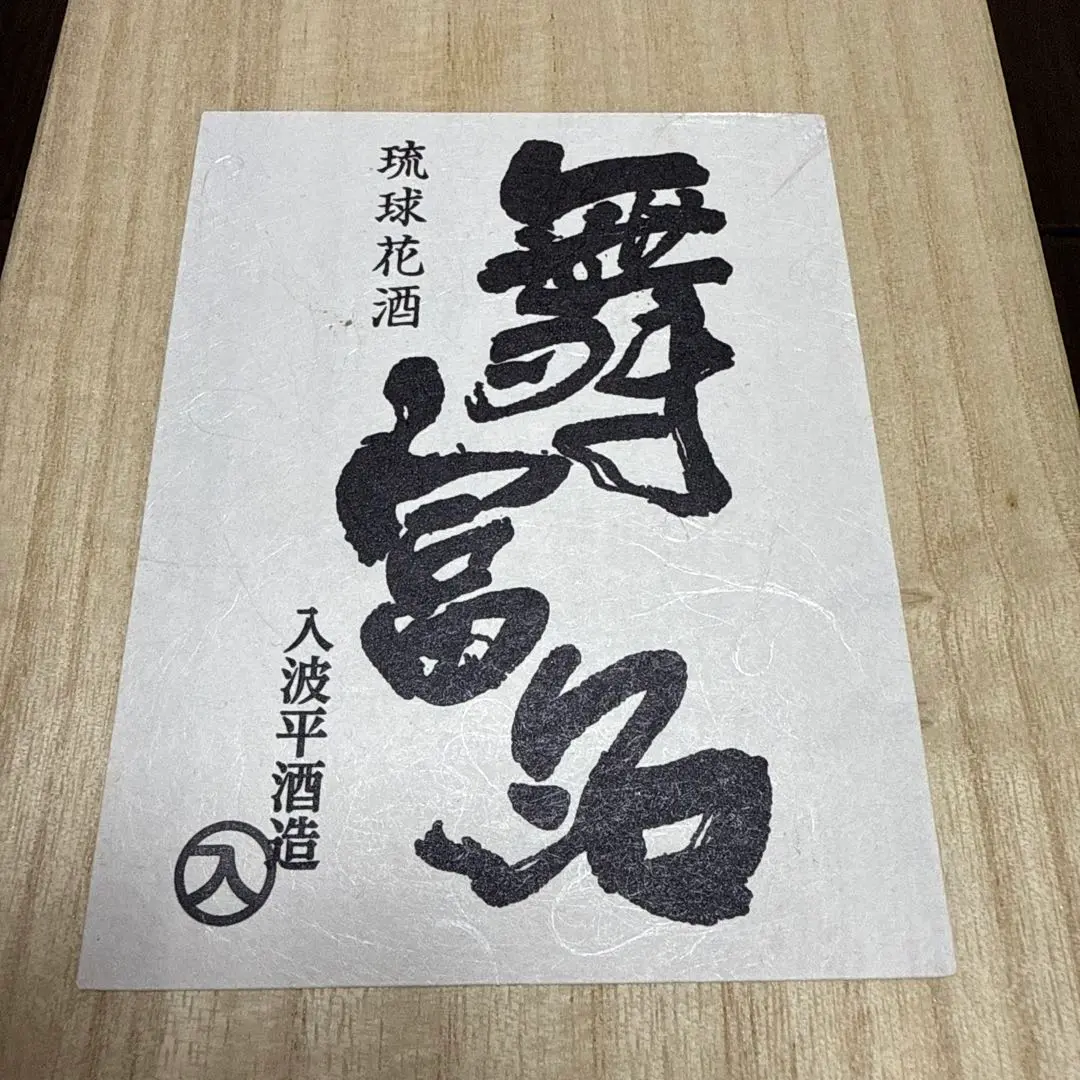 舞富名
琉球花酒
入波平酒造
入